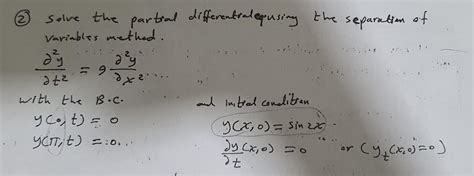 ② Solve the partial differential equsing the separation of
variables method.
∂²y/∂t² = 9 ∂²y/∂x²
with the B.C. and initial condition
y(0,t) = 0 y(x,0) = sin2x
y(π,t) = 0 ∂y/∂t (x,0) = 0 or (y_t(x,0)=0)